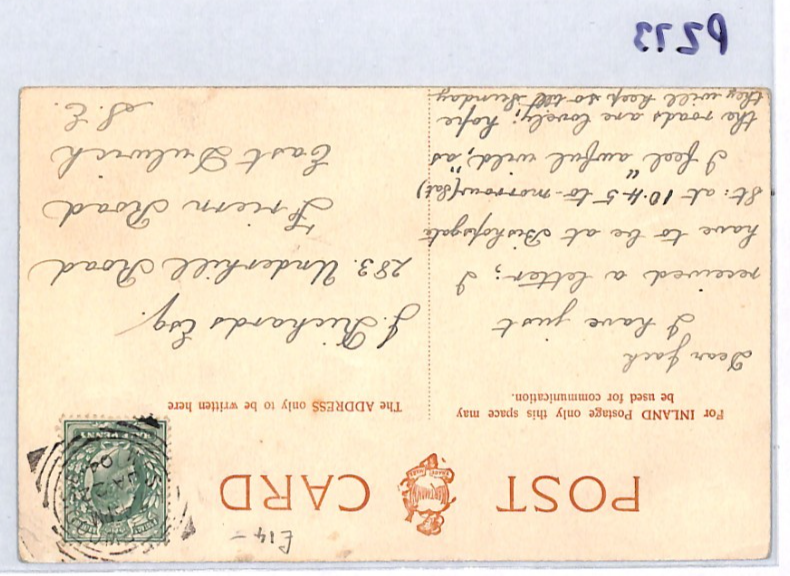 PZ73
£14 -
POST CARD
For INLAND Postage only this space may
be used for communication.
The ADDRESS only to be written here
Dear Jack
I have just
received a letter; I
have to be at Bishopsgate
St: at 10.45 to-morrow (Sat)
I feel "awful wild," as
the roads are lovely; hope
they will keep so till Sunday
J. Richards Esq.
283. Underhill Road
Friern Road
East Dulwich
S.E.
JA 22
04